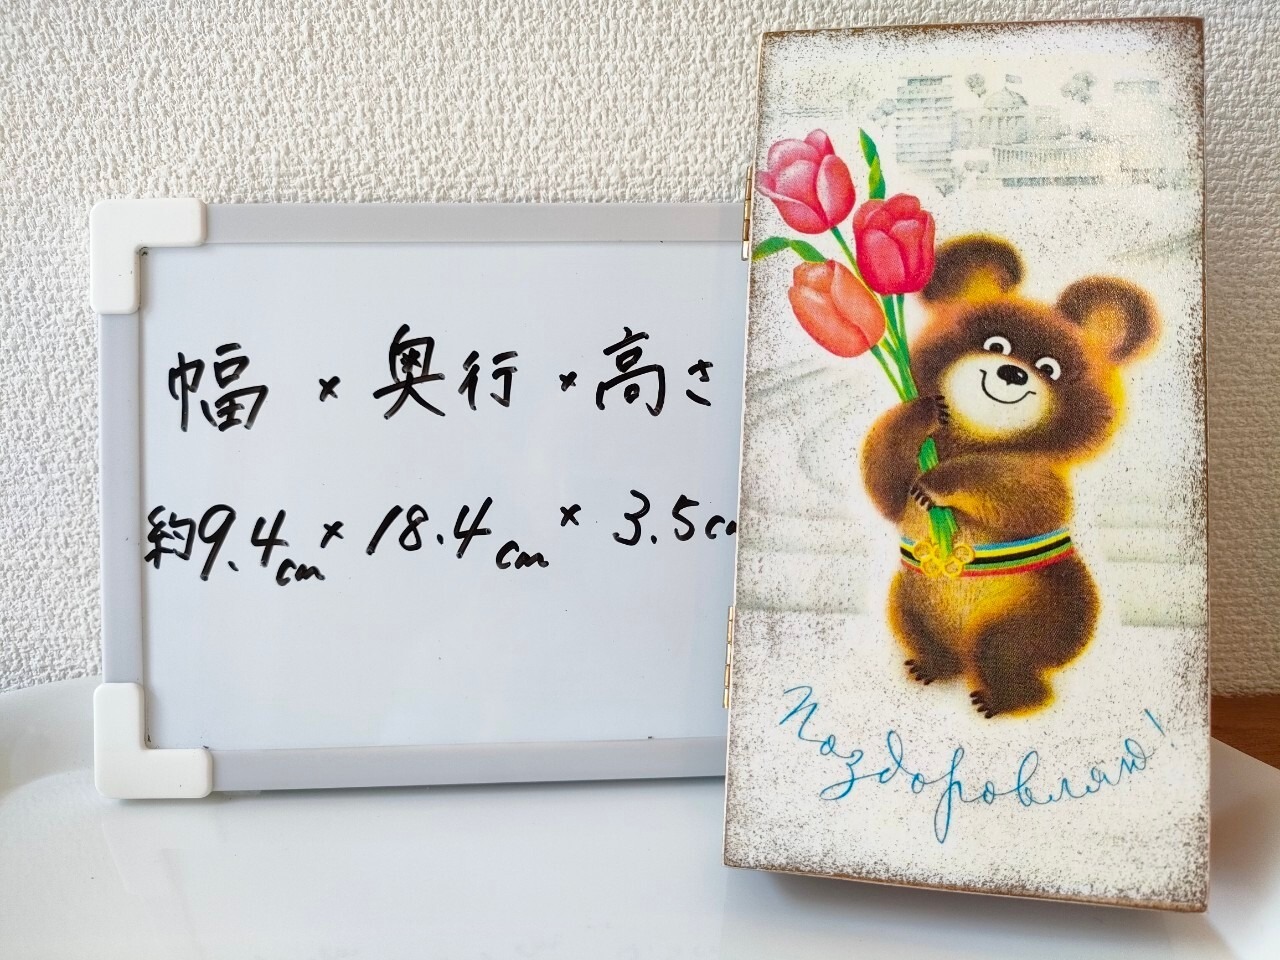 幅 × 奥行 × 高さ
約9.4cm × 18.4cm × 3.5cm
Поздоровляю!